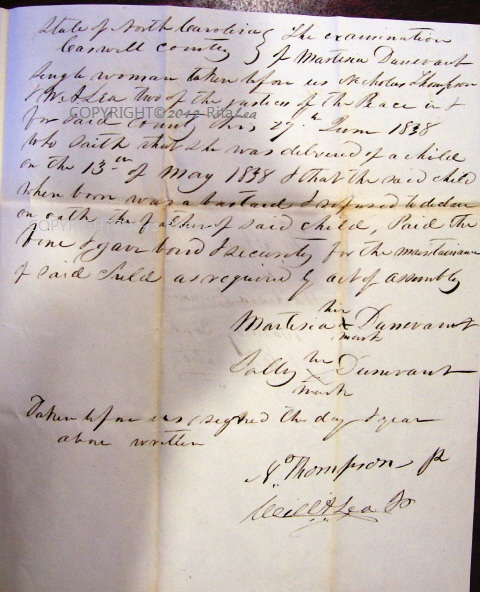 State of North Carolina } The examination
Caswell County } of Martisia Dunevant
Single woman taken before us Nicholas Thompson
& Wm A Lea two of the Justices of the Peace in &
for said County this 27th June 1838
COPYRIGHT©2012 RitaLea
who saith that she was delivered of a child
on the 13th of May 1838 & that the said child
when born was a bastard & refused to declare
on oath the father of said child, Paid the
COPYRIGHT
fine & gave bond & security for the maintainance
of said child as required by act of assembly
her
Martisia x Dunevant
mark
her
Sally x Dunevant
mark
Taken before us & signed the day & year
above written
No Thompson JP
Will A Lea JP